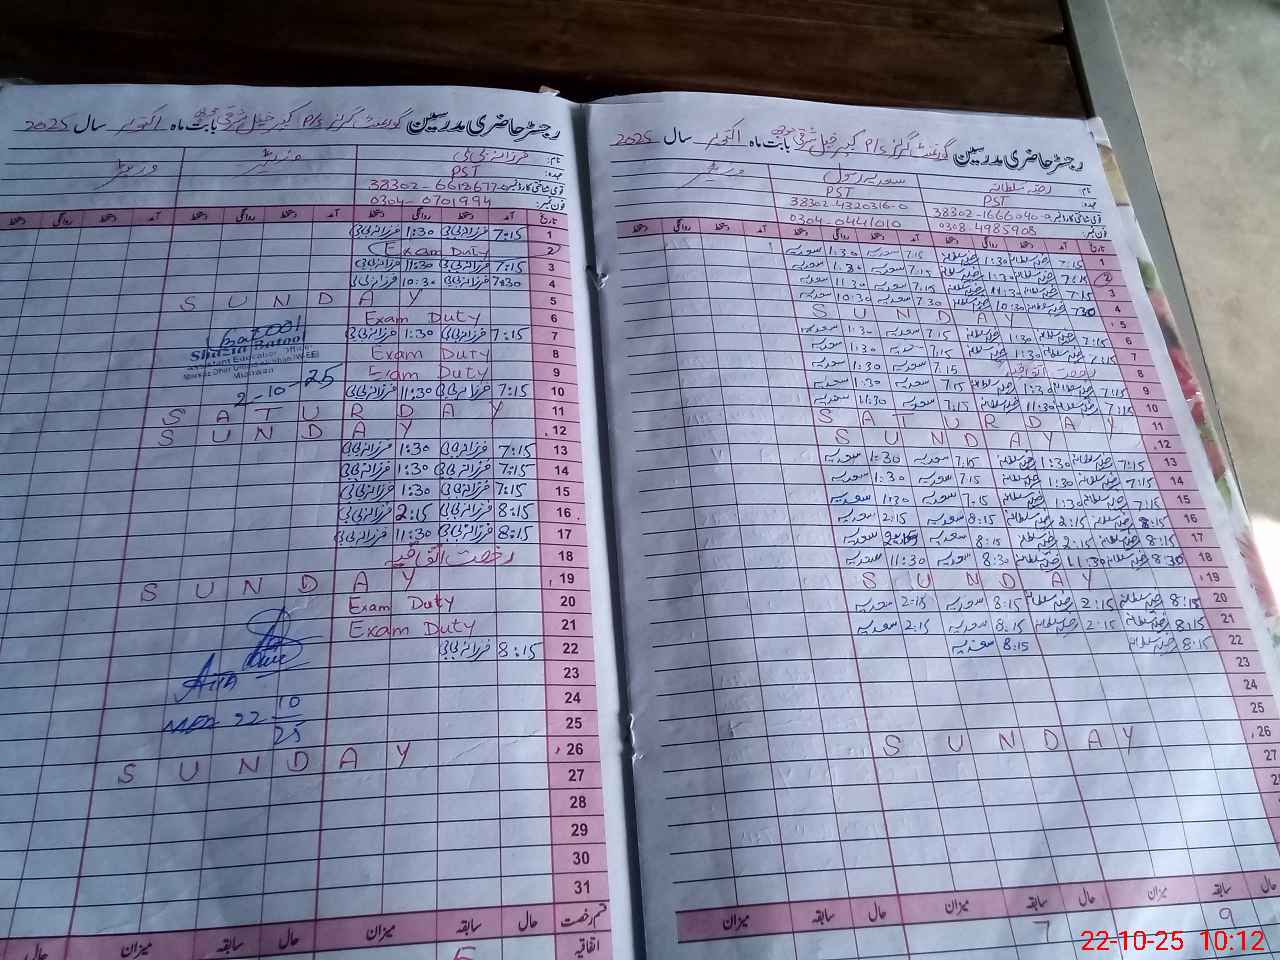 رجسٹر حاضری مدرسین گورنمنٹ گرلز P/S بابت ماہ اکتوبر سال 2025
نام: فرزانہ بی بی
عہدہ: PST
قومی شناختی کارڈ نمبر: 38302-6618677-0
فون نمبر: 0304-0701994
تاریخ آمد دستخط روانگی دستخط آمد دستخط روانگی دستخط
1 7:15 فرزانہ بی بی 1:30 فرزانہ بی بی
2 Exam Duty
3 7:15 فرزانہ بی بی 11:30 فرزانہ بی بی
4 7:30 فرزانہ بی بی 10:30 فرزانہ بی بی
5 SUNDAY
6 Exam Duty
7 7:15 فرزانہ بی بی 1:30 فرزانہ بی بی
8 Exam Duty
9 Exam Duty
10 7:15 فرزانہ بی بی 1:30 فرزانہ بی بی
11 SATURDAY
12 SUNDAY
13 7:15 فرزانہ بی بی 1:30 فرزانہ بی بی
14 7:15 فرزانہ بی بی 1:30 فرزانہ بی بی
15 7:15 فرزانہ بی بی 1:30 فرزانہ بی بی
16 8:15 فرزانہ بی بی 2:15 فرزانہ بی بی
17 8:15 فرزانہ بی بی 11:30 فرزانہ بی بی
18 رخصت اتفاقیہ
19 SUNDAY
20 Exam Duty
21 Exam Duty
22 8:15 فرزانہ بی بی
23
24
25
26 SUNDAY
27
28
29
30
31
قسم رخصت حال سابقہ میزان حال سابقہ میزان حال
اتفاقیہ 5
Shazia Batool
Assistant Education Officer
2-10-25
MEA 22 10/25
رجسٹر حاضری مدرسین گورنمنٹ گرلز P/S بابت ماہ اکتوبر سال 2025
نام رضیہ سلطانہ سعدیہ رسول
عہدہ: PST PST
قومی شناختی کارڈ نمبر: 38302-1666040-0 38302-4320316-0
فون نمبر: 0308-4985908 0304-0441010
تاریخ آمد دستخط روانگی دستخط آمد دستخط روانگی دستخط
1 7:15 رضیہ سلطانہ 1:30 رضیہ سلطانہ 7:15 سعدیہ 1:30 سعدیہ
2 7:15 رضیہ سلطانہ 1:30 رضیہ سلطانہ 7:15 سعدیہ 1:30 سعدیہ
3 7:15 رضیہ سلطانہ 11:30 رضیہ سلطانہ 7:15 سعدیہ 11:30 سعدیہ
4 7:30 رضیہ سلطانہ 10:30 رضیہ سلطانہ 7:30 سعدیہ 10:30 سعدیہ
5 SUNDAY
6 7:15 رضیہ سلطانہ 1:30 رضیہ سلطانہ 7:15 سعدیہ 1:30 سعدیہ
7 7:15 رضیہ سلطانہ 11:30 رضیہ سلطانہ 7:15 سعدیہ 1:30 سعدیہ
8 رخصت اتفاقیہ 7:15 سعدیہ 1:30 سعدیہ
9 7:15 رضیہ سلطانہ 1:30 رضیہ سلطانہ 7:15 سعدیہ 1:30 سعدیہ
10 7:15 رضیہ سلطانہ 11:30 رضیہ سلطانہ 7:15 سعدیہ 11:30 سعدیہ
11 SATURDAY
12 SUNDAY
13 7:15 رضیہ سلطانہ 1:30 رضیہ سلطانہ 7:15 سعدیہ 1:30 سعدیہ
14 7:15 رضیہ سلطانہ 1:30 رضیہ سلطانہ 7:15 سعدیہ 1:30 سعدیہ
15 7:15 رضیہ سلطانہ 1:30 رضیہ سلطانہ 7:15 سعدیہ 1:30 سعدیہ
16 8:15 رضیہ سلطانہ 2:15 رضیہ سلطانہ 8:15 سعدیہ 2:15 سعدیہ
17 8:15 رضیہ سلطانہ 2:15 رضیہ سلطانہ 8:15 سعدیہ سعدیہ
18 8:30 رضیہ سلطانہ 11:30 رضیہ سلطانہ 8:30 سعدیہ 11:30 سعدیہ
19 SUNDAY
20 8:15 رضیہ سلطانہ 2:15 رضیہ سلطانہ 8:15 سعدیہ 2:15 سعدیہ
21 8:15 رضیہ سلطانہ 2:15 رضیہ سلطانہ 8:15 سعدیہ 2:15 سعدیہ
22 8:15 رضیہ سلطانہ 8:15 سعدیہ
23
24
25
26 SUNDAY
27
حال سابقہ میزان حال سابقہ میزان حال سابقہ میزان
9 7
22-10-25 10:12